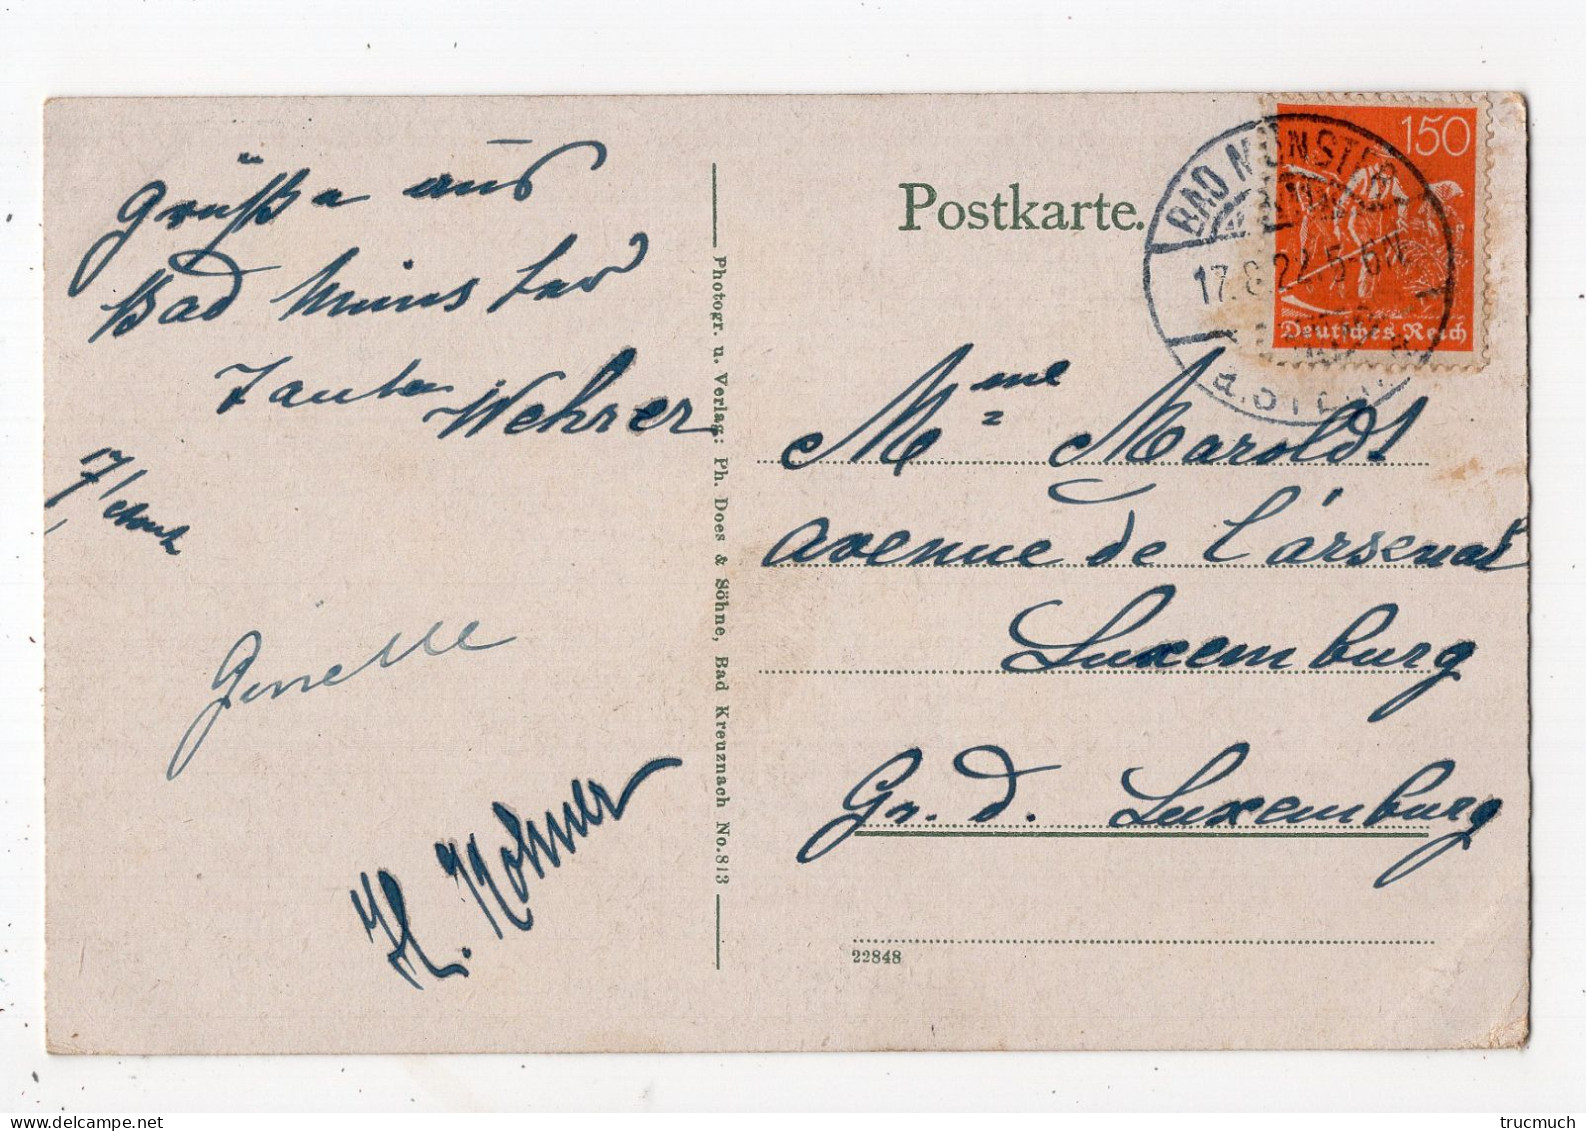 Grüße aus
Bad Münster
Tante Wehrer
17/
Ginette
H. Hohmer
Photogr. u. Verlag: Ph. Does & Söhne, Bad Kreuznach No. 813
Postkarte.
150
Deutsches Reich
BAD MÜNSTER
17.8.22 5-6N
a. STEIN
Mme Maroldt
avenue de l'arsenal
Luxemburg
Gr. d. Luxemburg
22848
trucmuch